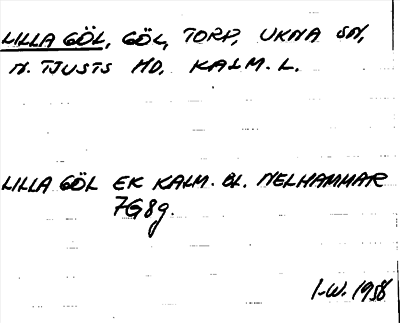 LILLA GÖL, GÖL, TORP, UKNA SN,
N. TJUSTS HD, KALM. L.
LILLA GÖL EK KALM. BL. NELHAMMAR
7G8g.
I-W. 1958